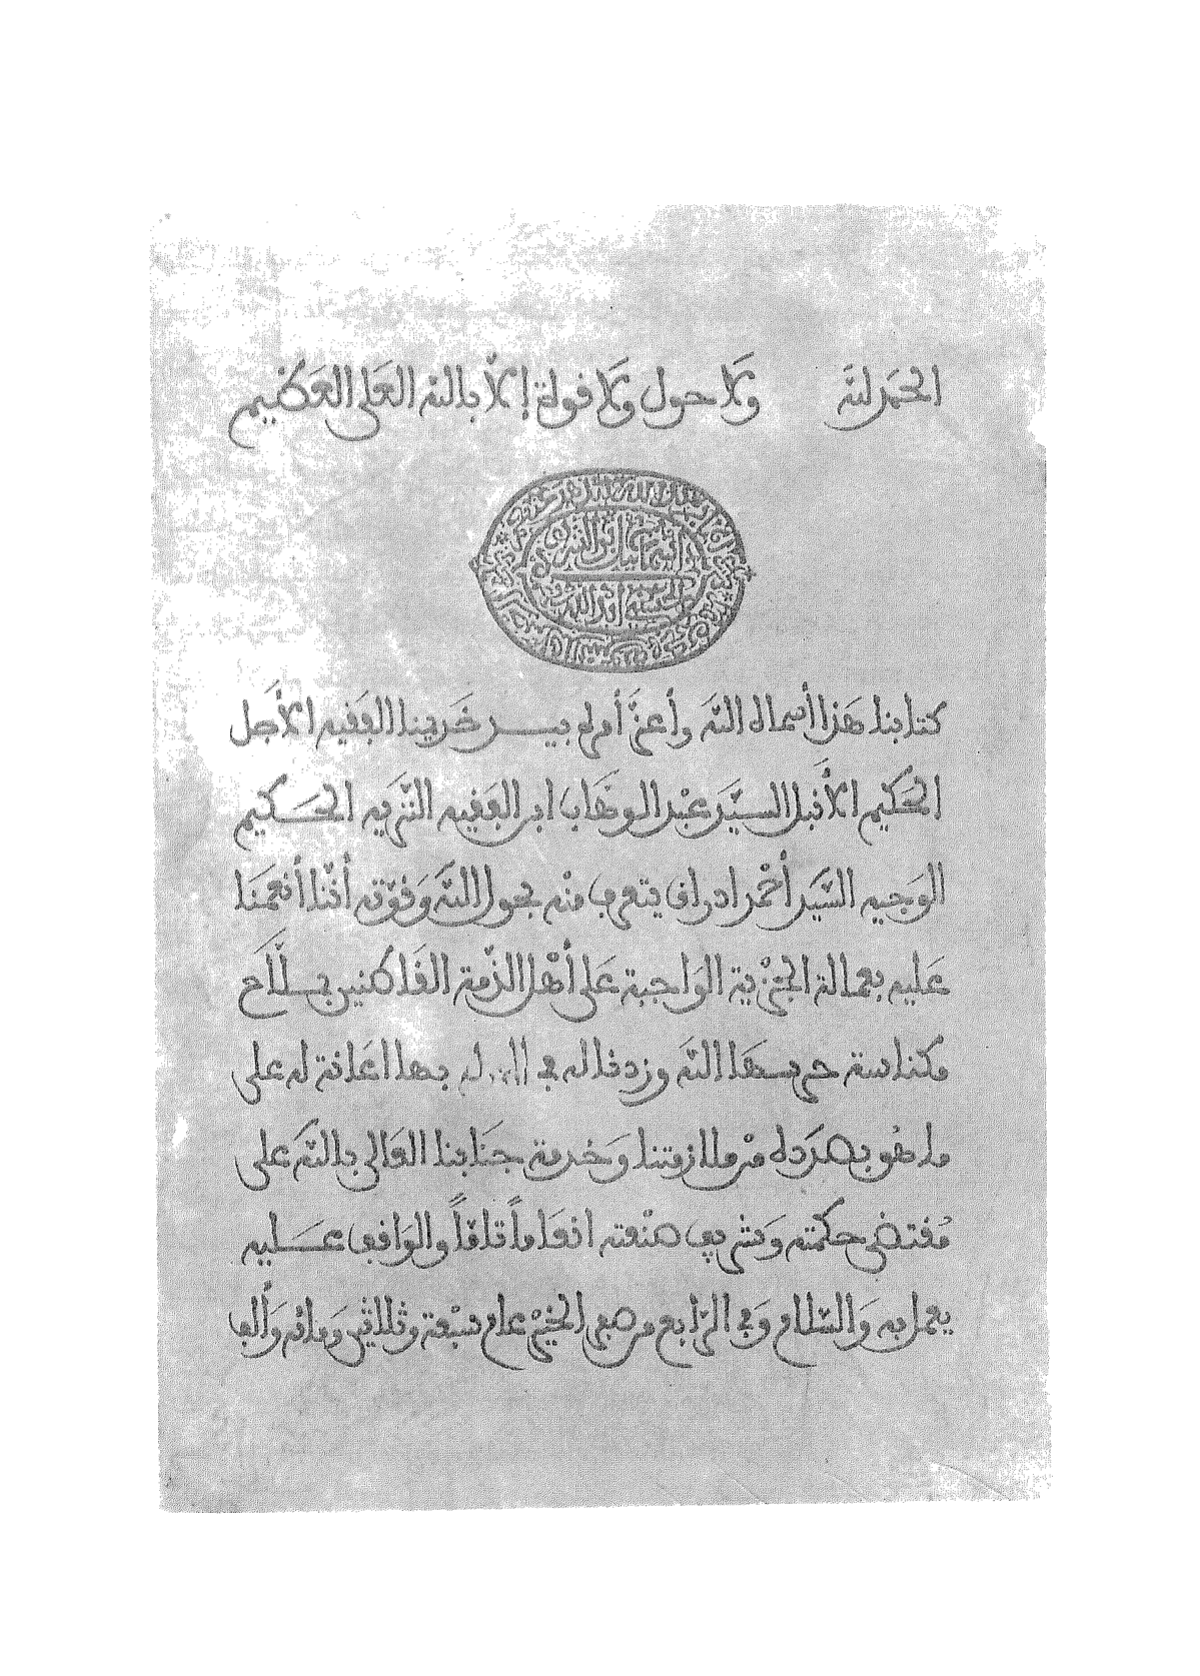 الحمد لله ولا حول ولا قوة إلا بالله العلي العظيم
إسماعيل ابن الشريف
كتابنا هذا أسماه الله وأعز أمره بيد خديمنا الفقيه الأجل
الحكيم الأنبل السيد عبد الوهاب ابن الفقيه النزيه الحكيم
الوجيه السيد أحمد ادراق يتعرف منه بحول الله وقوته أننا أنعمنا
عليه بعمالة الجزية الواجبة على أهل الذمة القاطنين بملاح
مكناسة حرسها الله وزدناله في بها اعانة له على
ما هو بصدده من ملازمتنا وخدمة جنابنا العالي بالله على
مقتضى حكمته وشريف صنعته انعاما تاما والواقف عليه
يعمل به والسلام وفي الرابع من صفر الخير عام سبعة وثلاثين ومائة وألف